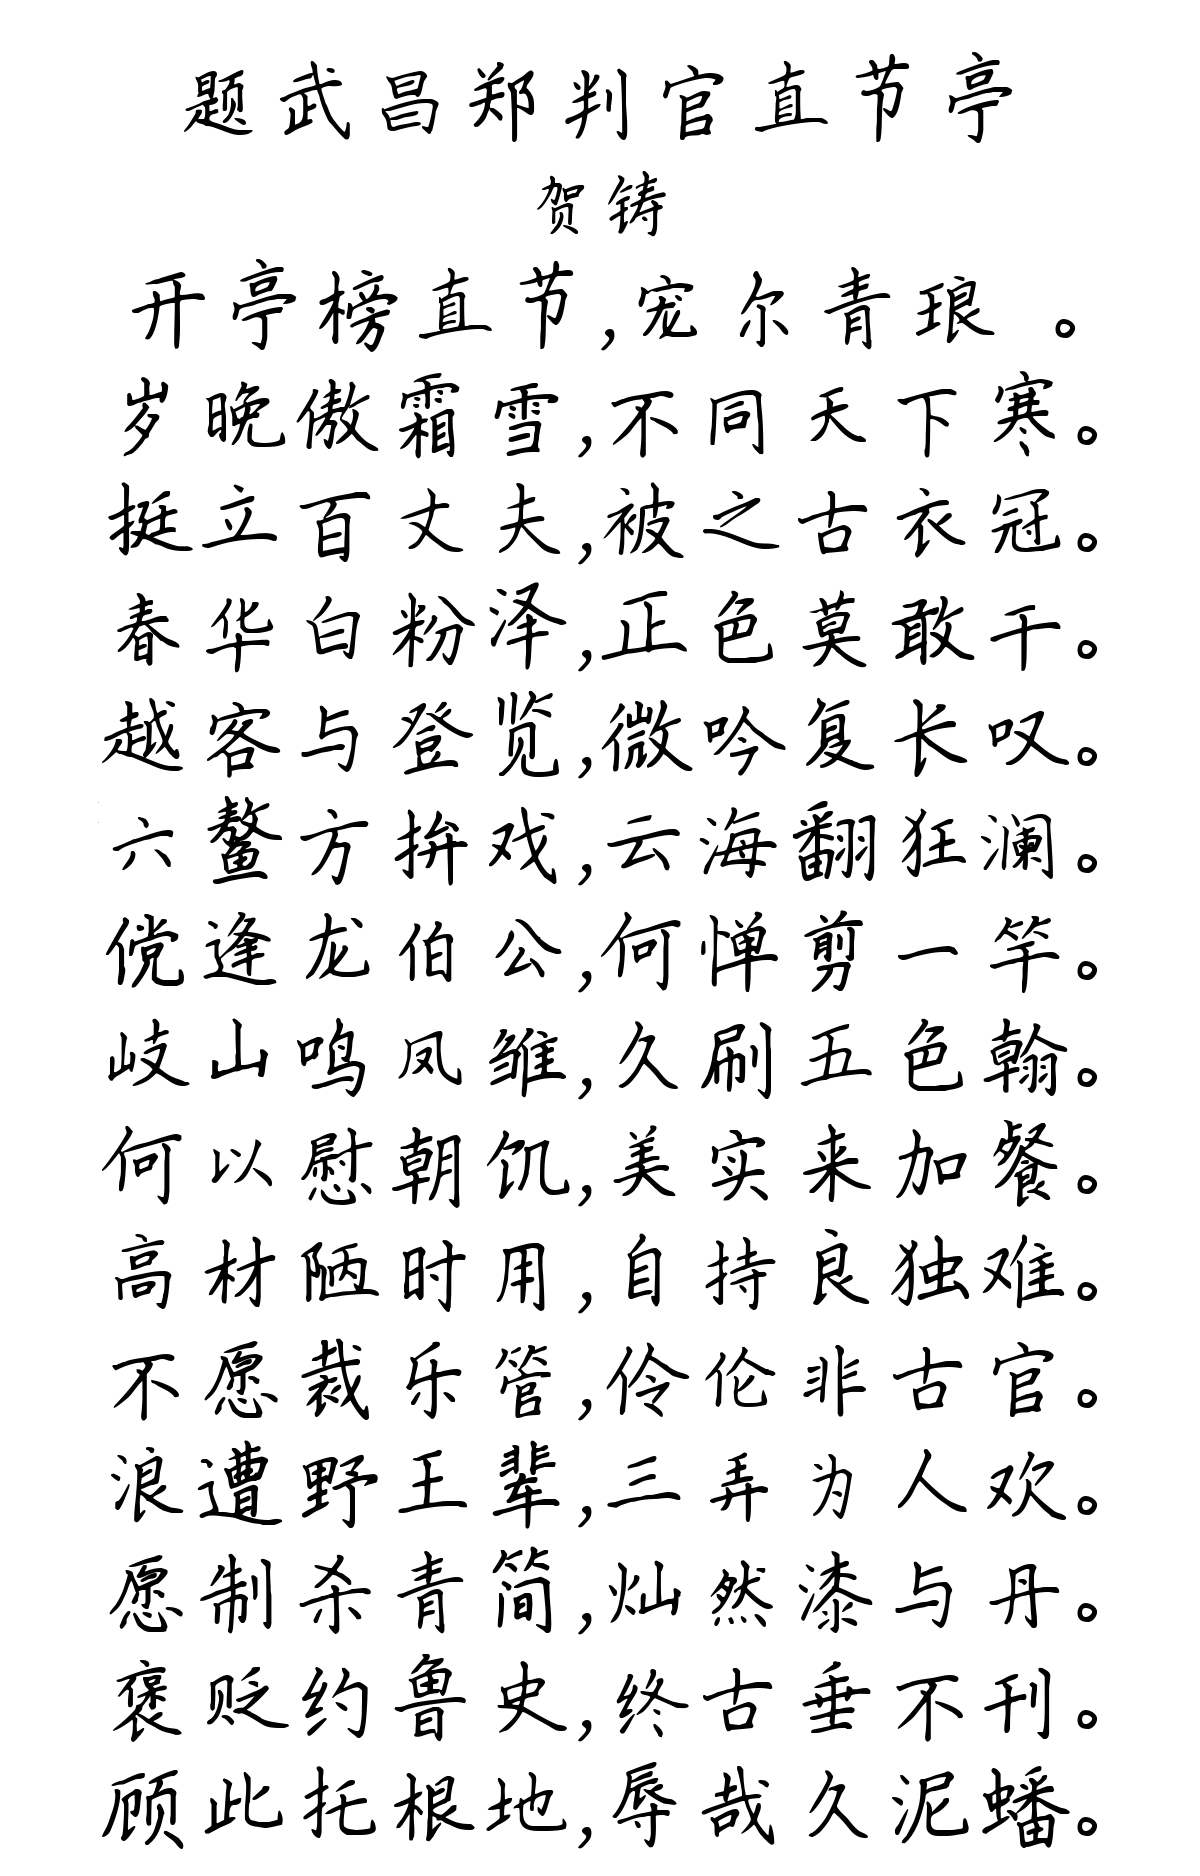 题武昌郑判官直节亭
贺铸
开亭榜直节,宠尔青琅 。
岁晚傲霜雪,不同天下寒。
挺立百丈夫,被之古衣冠。
春华白粉泽,正色莫敢干。
越客与登览,微吟复长叹。
六鳌方拚戏,云海翻狂澜。
傥逢龙伯公,何惮剪一竿。
岐山鸣凤雏,久刷五色翰。
何以慰朝饥,美实来加餐。
高材陋时用,自持良独难。
不愿裁乐管,伶伦非古官。
浪遭野王辈,三弄为人欢。
愿制杀青简,灿然漆与丹。
褒贬约鲁史,终古垂不刊。
顾此托根地,辱哉久泥蟠。